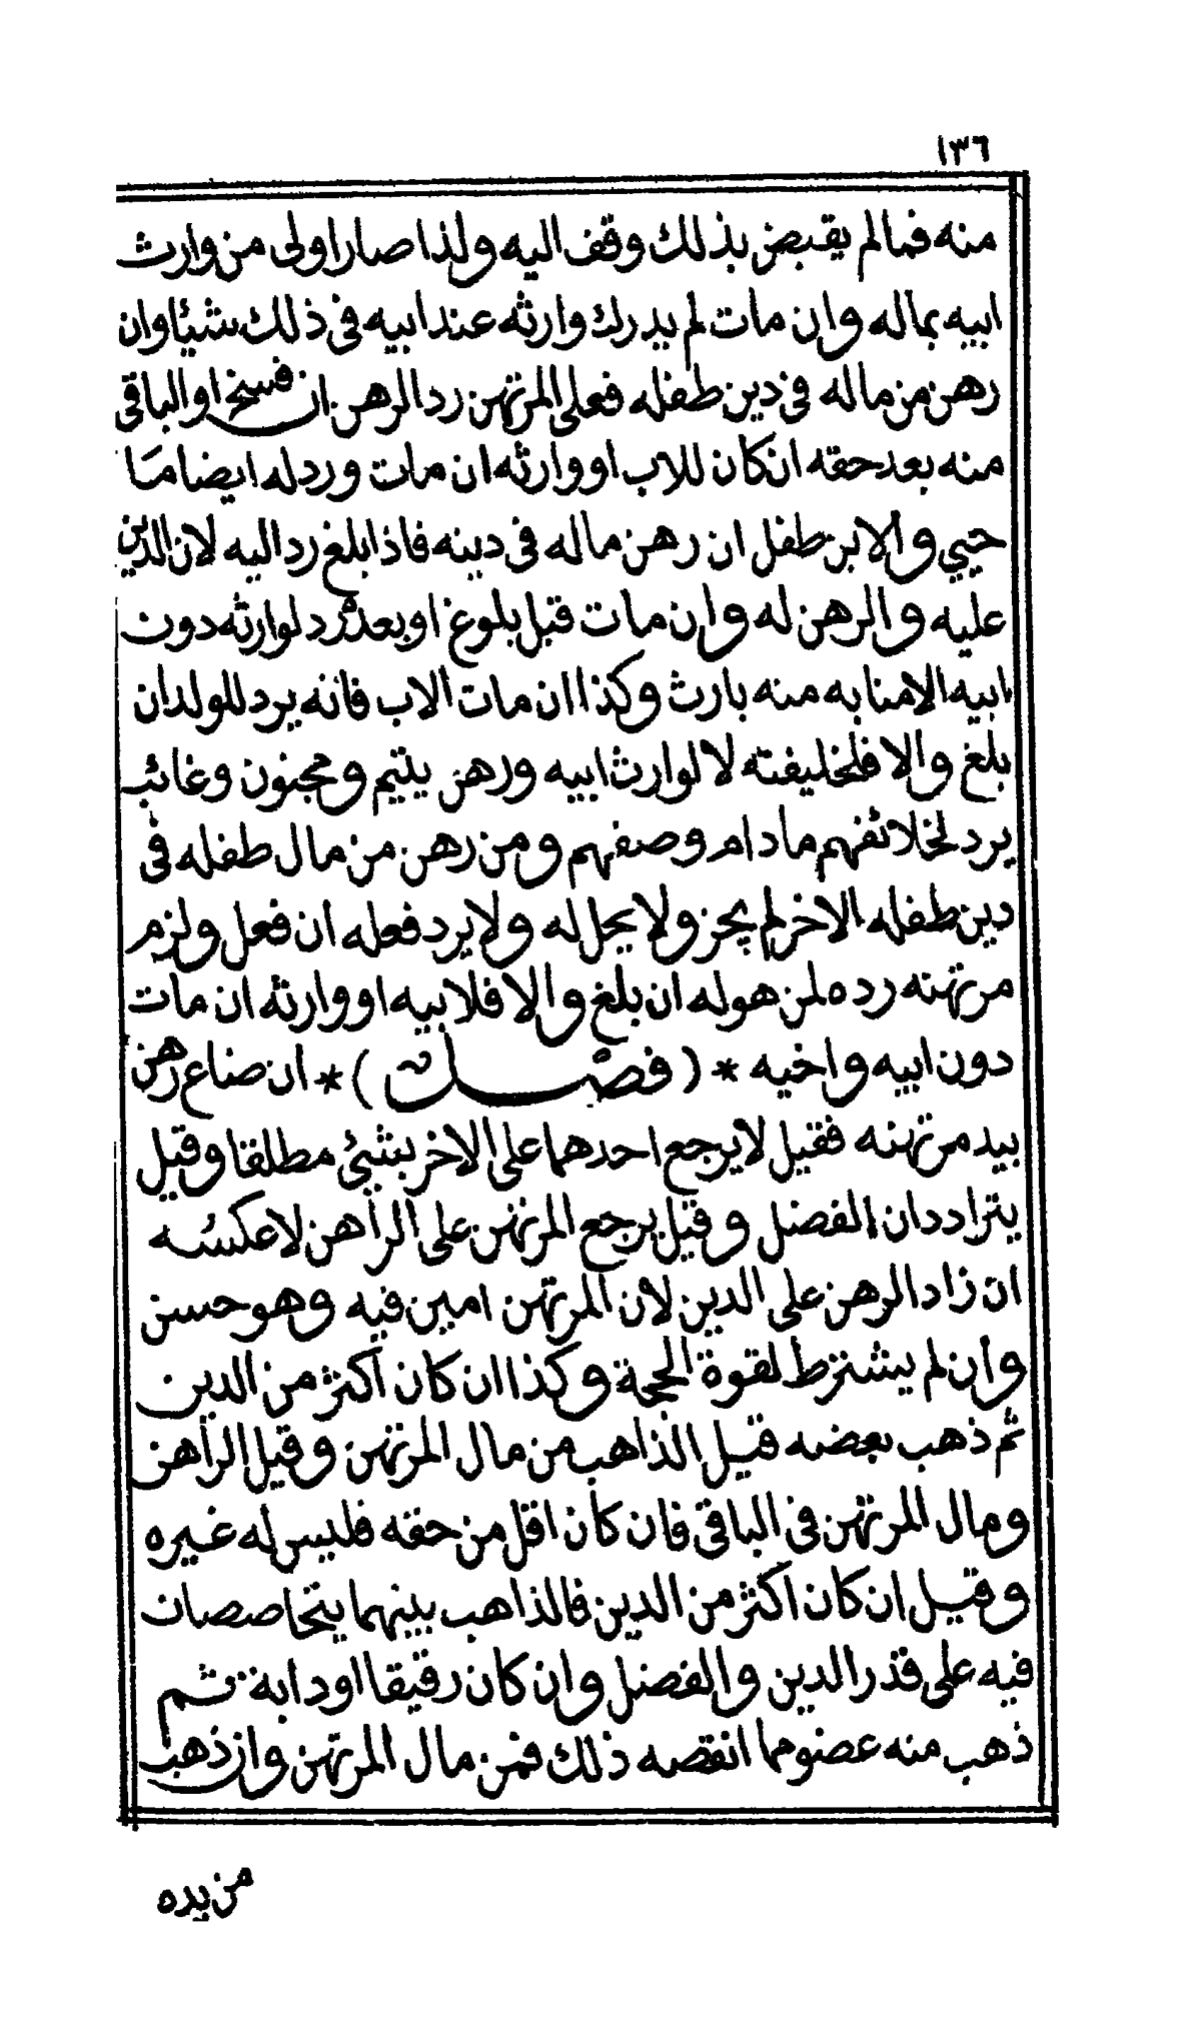 ١٣٦
منه فمالم يقبض بذلك وقف اليه ولذا صار اولى من وارث
ابيه بماله وان مات لم يدرك وارثه عند ابيه فى ذلك شيئا وان
رهن من ماله فى دين طفله فعلى المرتهن رد الرهن ان فسخ او الباقى
منه بعد حقه ان كان للاب او وارثه ان مات ورد له ايضا ما
حيي والابن طفل ان رهن ماله فى دينه فاذا بلغ رد اليه لان الدين
عليه والرهن له وان مات قبل بلوغ او بعده رد لوارثه دون
ابيه الا منابه منه بارث وكذا ان مات الاب فانه يرد للولد ان
بلغ والا فلخليفته لا لوارث ابيه ورهن يتيم ومجنون وغائب
يرد لخلائفهم مادام وصفهم ومن رهن من مال طفله فى
دين طفله الاخر لم يجز ولا يحل له ولا يرد فعله ان فعل ولزم
مرتهنه رده لمن هو له ان بلغ والا فلابيه او وارثه ان مات
دون ابيه واخيه * ( فصل ) * ان ضاع رهن
بيد مرتهنه فقيل لا يرجع احدهما على الاخر بشئ مطلقا وقيل
يترادان الفضل وقيل يرجع المرتهن على الراهن لا عكسه
ان زاد الرهن على الدين لان المرتهن امين فيه وهو حسن
وان لم يشترط لقوة الحجة وكذا ان كان اكثر من الدين
ثم ذهب بعضه قيل الذاهب من مال المرتهن وقيل الراهن
ومال المرتهن فى الباقى فان كان اقل من حقه فليس له غيره
وقيل ان كان اكثر من الدين فالذاهب بينهما يتحاصصان
فيه على قدر الدين والفضل وان كان رقيقا او دابة ثم
ذهب منه عضو مما انقصه ذلك فمن مال المرتهن وان ذهب
من يده